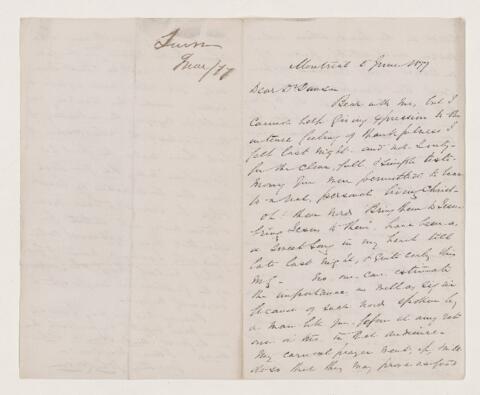 Montreal 5 June 1877
Dear Dr Dawson
Bear with me, but I
cannot help giving expression to the
intense feeling of thankfulness I
felt last night and not simply
for the clear, full & simple testi-
mony you were permitted to bear
to a real, personal living Christ-
oh! those words "Bring them to Jesus
bring Jesus to them" have been as
a sweet song in my heart till
late last night, & quite early this
mg - No one can estimate
the importance as well as
because of such words spoken by
a man like you, before at any rate
one or two in that audience -
My earnest prayer
that they may prove as good